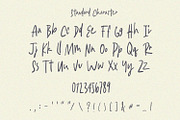 Standard Character
Aa Bb Cc Dd Ee Ff Gg Hh Ii
Jj Kk Ll Mm Nn Oo Pp Qq Rr
Ss Tt Uu Vv Ww Xx Yy Zz
0123456789